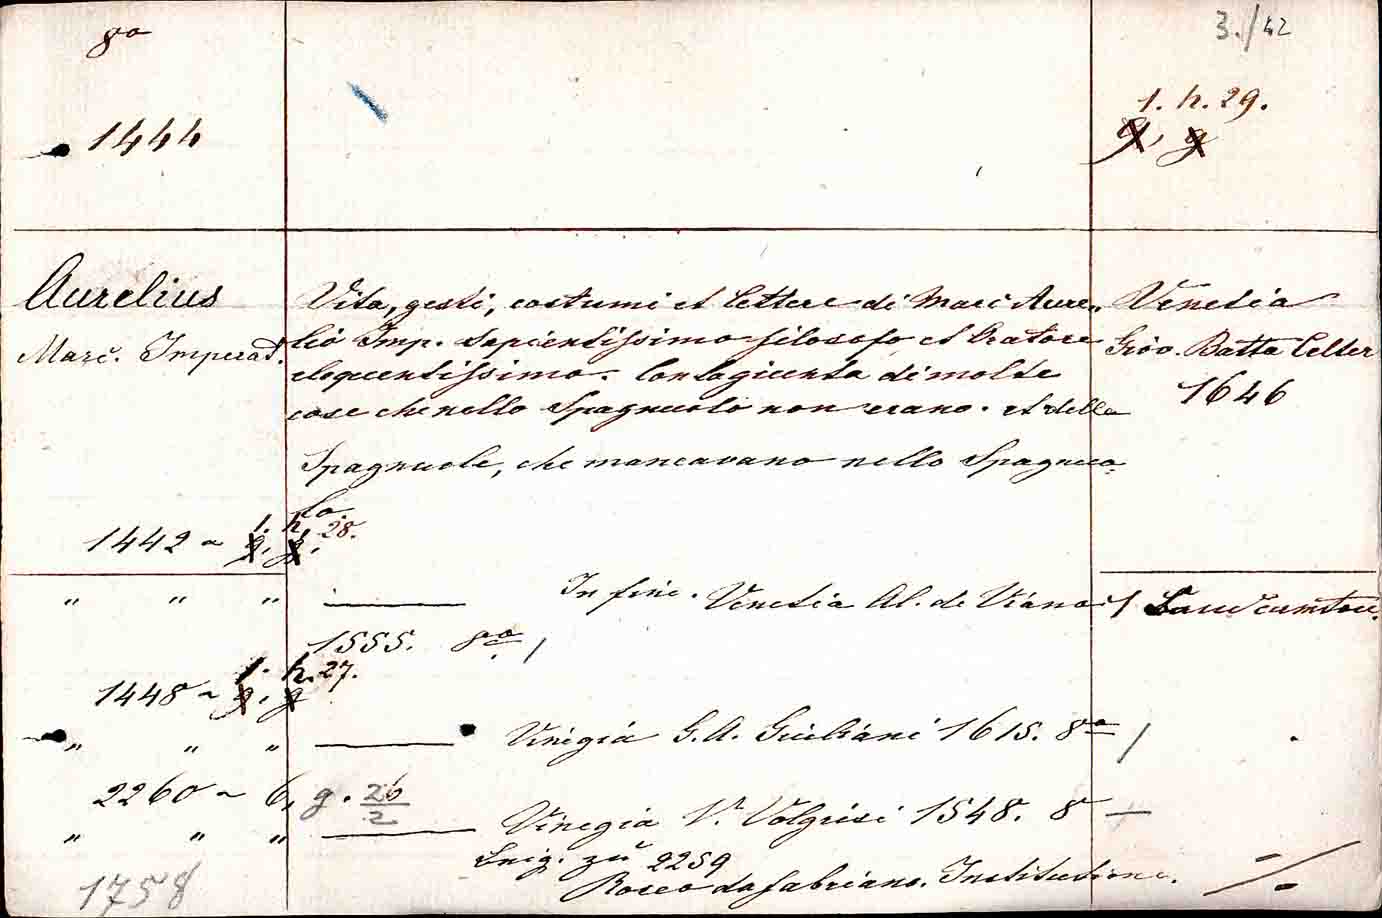 8o
3./42
1. h. 29.
1444
g, g
Aurelius
Marc. Imperad.
Vita, gesti, costumi et lettere di Marc Aure-
lio Imp. sapientissimo filosofo et Oratore
eloquentissimo. Con lagiunta di molte
cose che nello Spagnuolo non erano. et delle
Spagnuole, che mancavano nello Spagnuo-
lo.
Venetia
Giov. Batta Celter
1646
1442 ~ g, g. 1. h. 28.
" " " In fine. Venetia Al. de Viano
1555. 8o /
1448 ~ g, g 1. h. 27.
" " " Vinegia G. A. Giuliani 1615. 8o /
2260 ~ 6, g. 26/2
" " " Vinegia V. Valgrisi 1548. 8 —
zu 2259
Roseo da Fabriano. Institutione.
1758